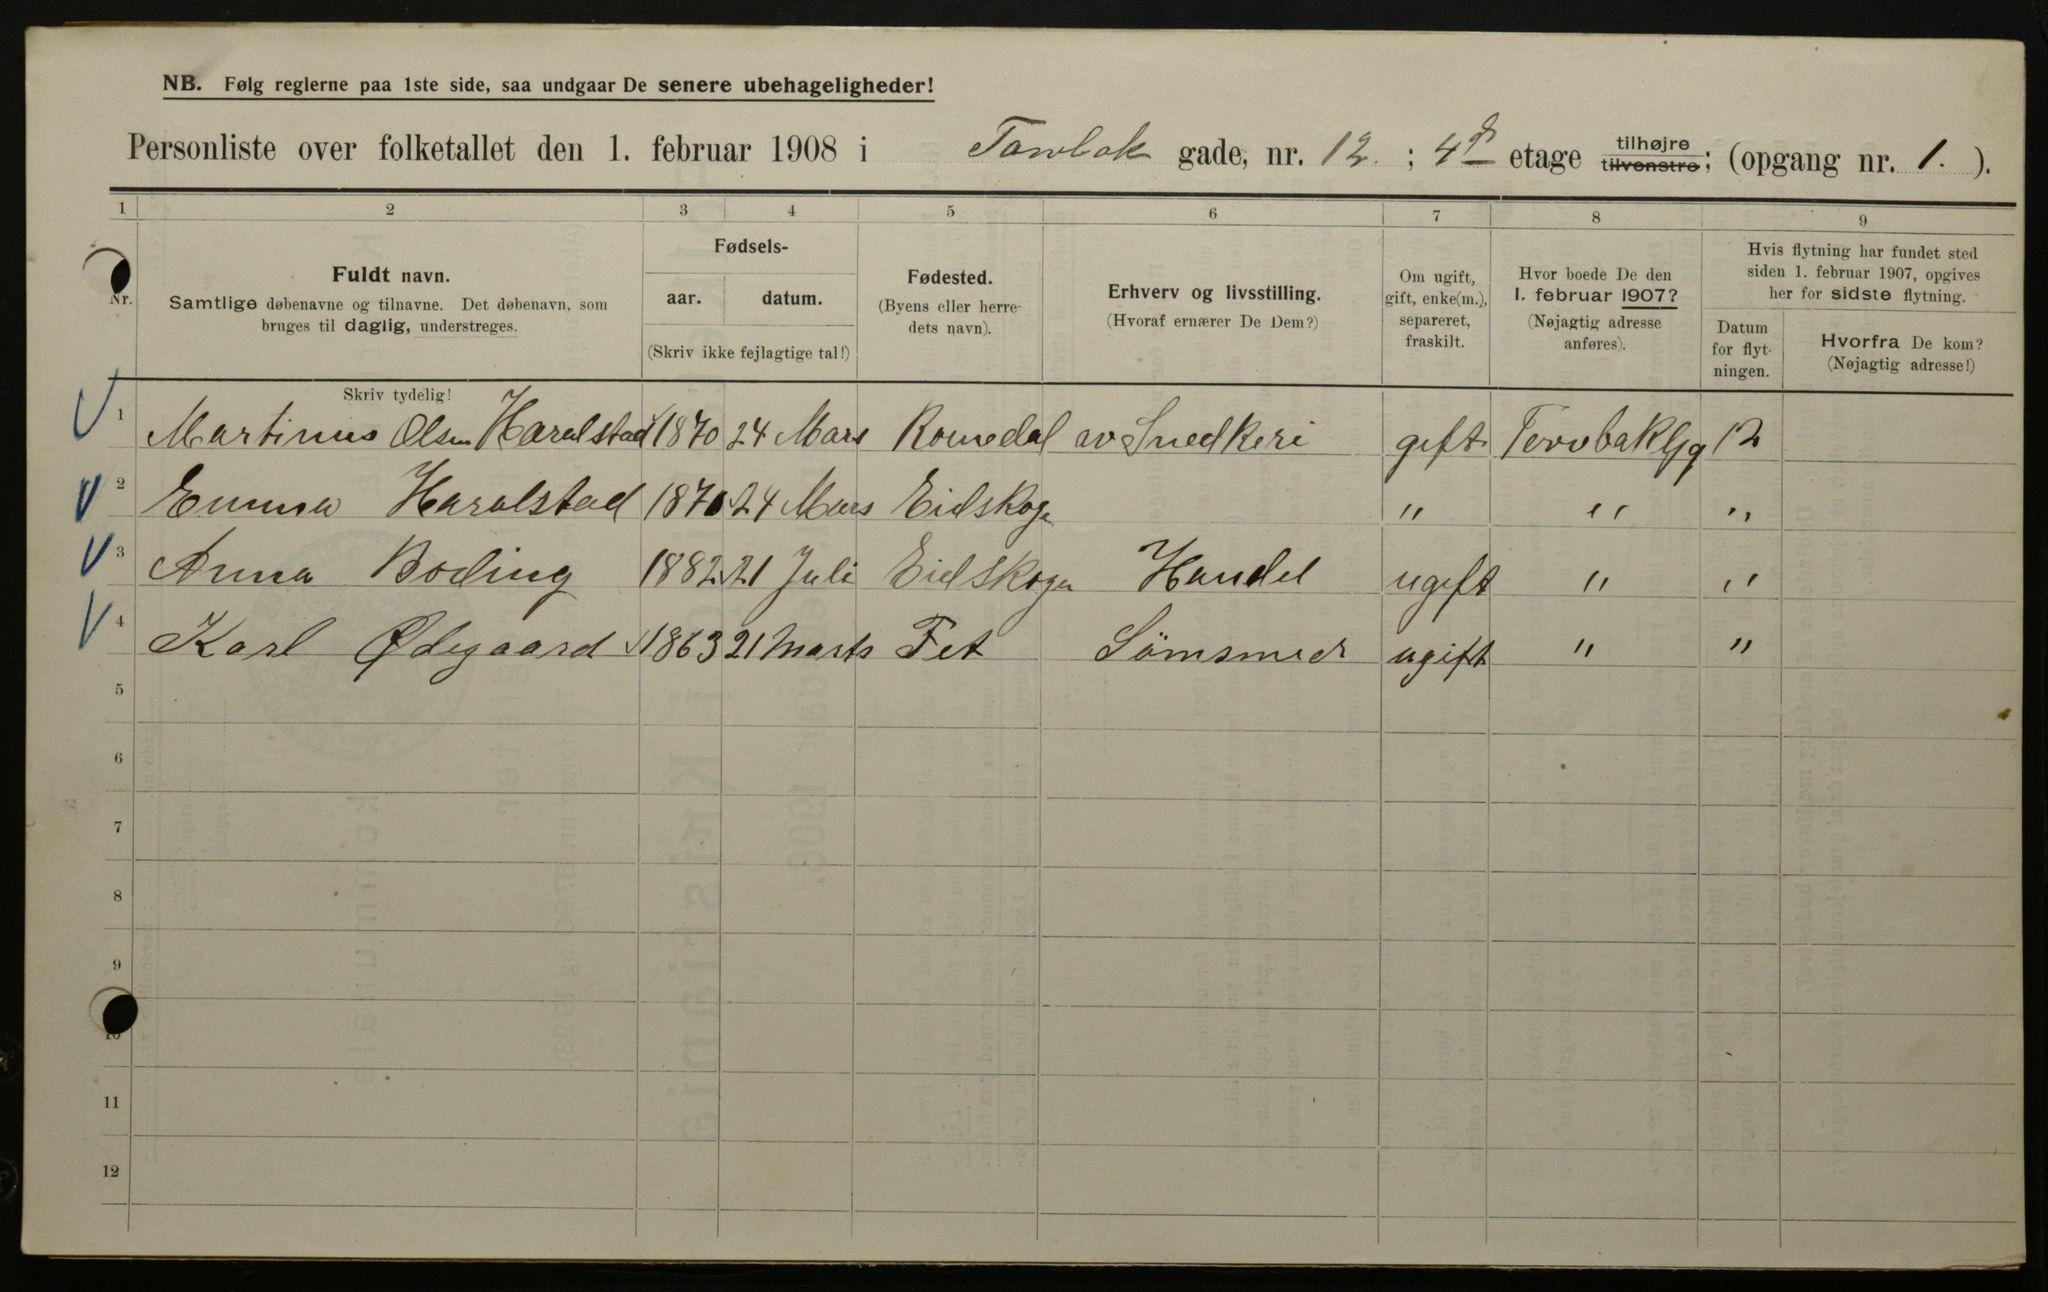 NB. Følg reglerne paa 1ste side, saa undgaar De senere ubehageligheder!
Personliste over folketallet den 1. februar 1908 i Torvbak gade, nr. 12. ; 4de etage tilhøjre tilvenstre; (opgang nr. 1. ).
1 2 3 4 5 6 7 8 9
Nr.
Fuldt navn.
Samtlige døbenavne og tilnavne. Det døbenavn, som
bruges til daglig, understreges.
Skriv tydelig!
Fødsels-
aar. datum.
(Skriv ikke fejlagtige tal!)
Fødested.
(Byens eller herre-
dets navn).
Erhverv og livsstilling.
(Hvoraf ernærer De Dem?)
Om ugift,
gift, enke(m.),
separeret,
fraskilt.
Hvor boede De den
1. februar 1907?
(Nøjagtig adresse
anføres).
Hvis flytning har fundet sted
siden 1. februar 1907, opgives
her for sidste flytning.
Datum
for flyt-
ningen.
Hvorfra De kom?
(Nøjagtig adresse!)
1 Martinus Olsen Haralstad 1870 24 Mars Romedal av Snedkeri gift Torvbakgg 12
2 Emma Haralstad 1870 24 Mars Eidskoge " " "
3 Anna Boding 1882 21 Juli Eidskoge Handel ugift " "
4 Karl Ødegaard 1863 21 Marts Fet Sömsmed ugift " "
5
6
7
8
9
10
11
12